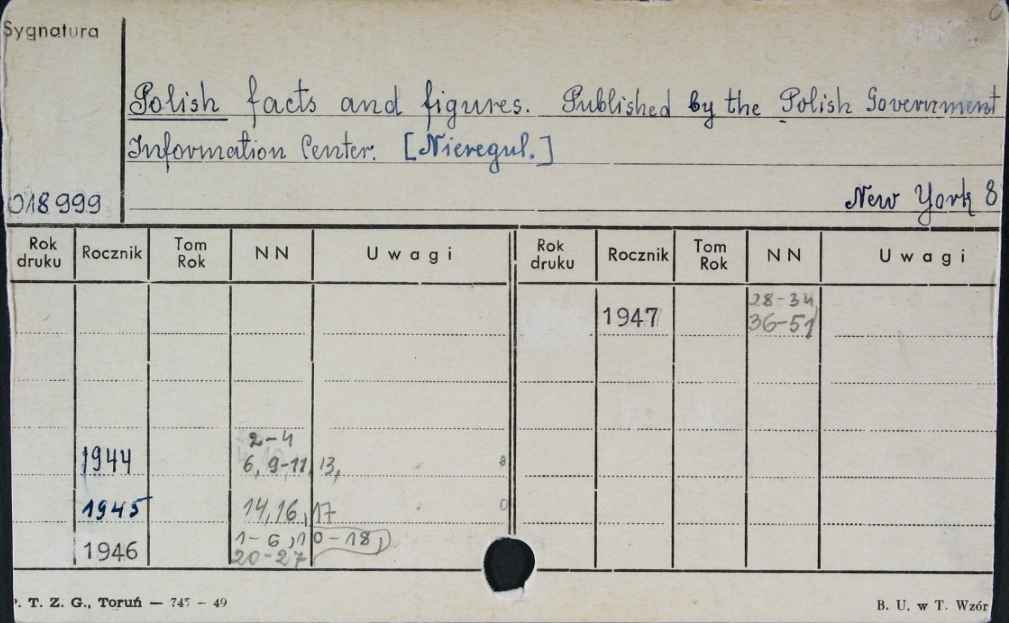 Sygnatura
Polish facts and figures. Published by the Polish Government
Information Center. [Nieregul.]
018999
New York 8
Rok druku Rocznik Tom Rok NN Uwagi Rok druku Rocznik Tom Rok NN Uwagi
1947 28-34
36-51
2-4
1944 6, 9-11, 13,
1945 14, 16, 17
1946 1-6, 10-18,
20-27
P. T. Z. G., Toruń — 745 – 49
B. U. w T. Wzór